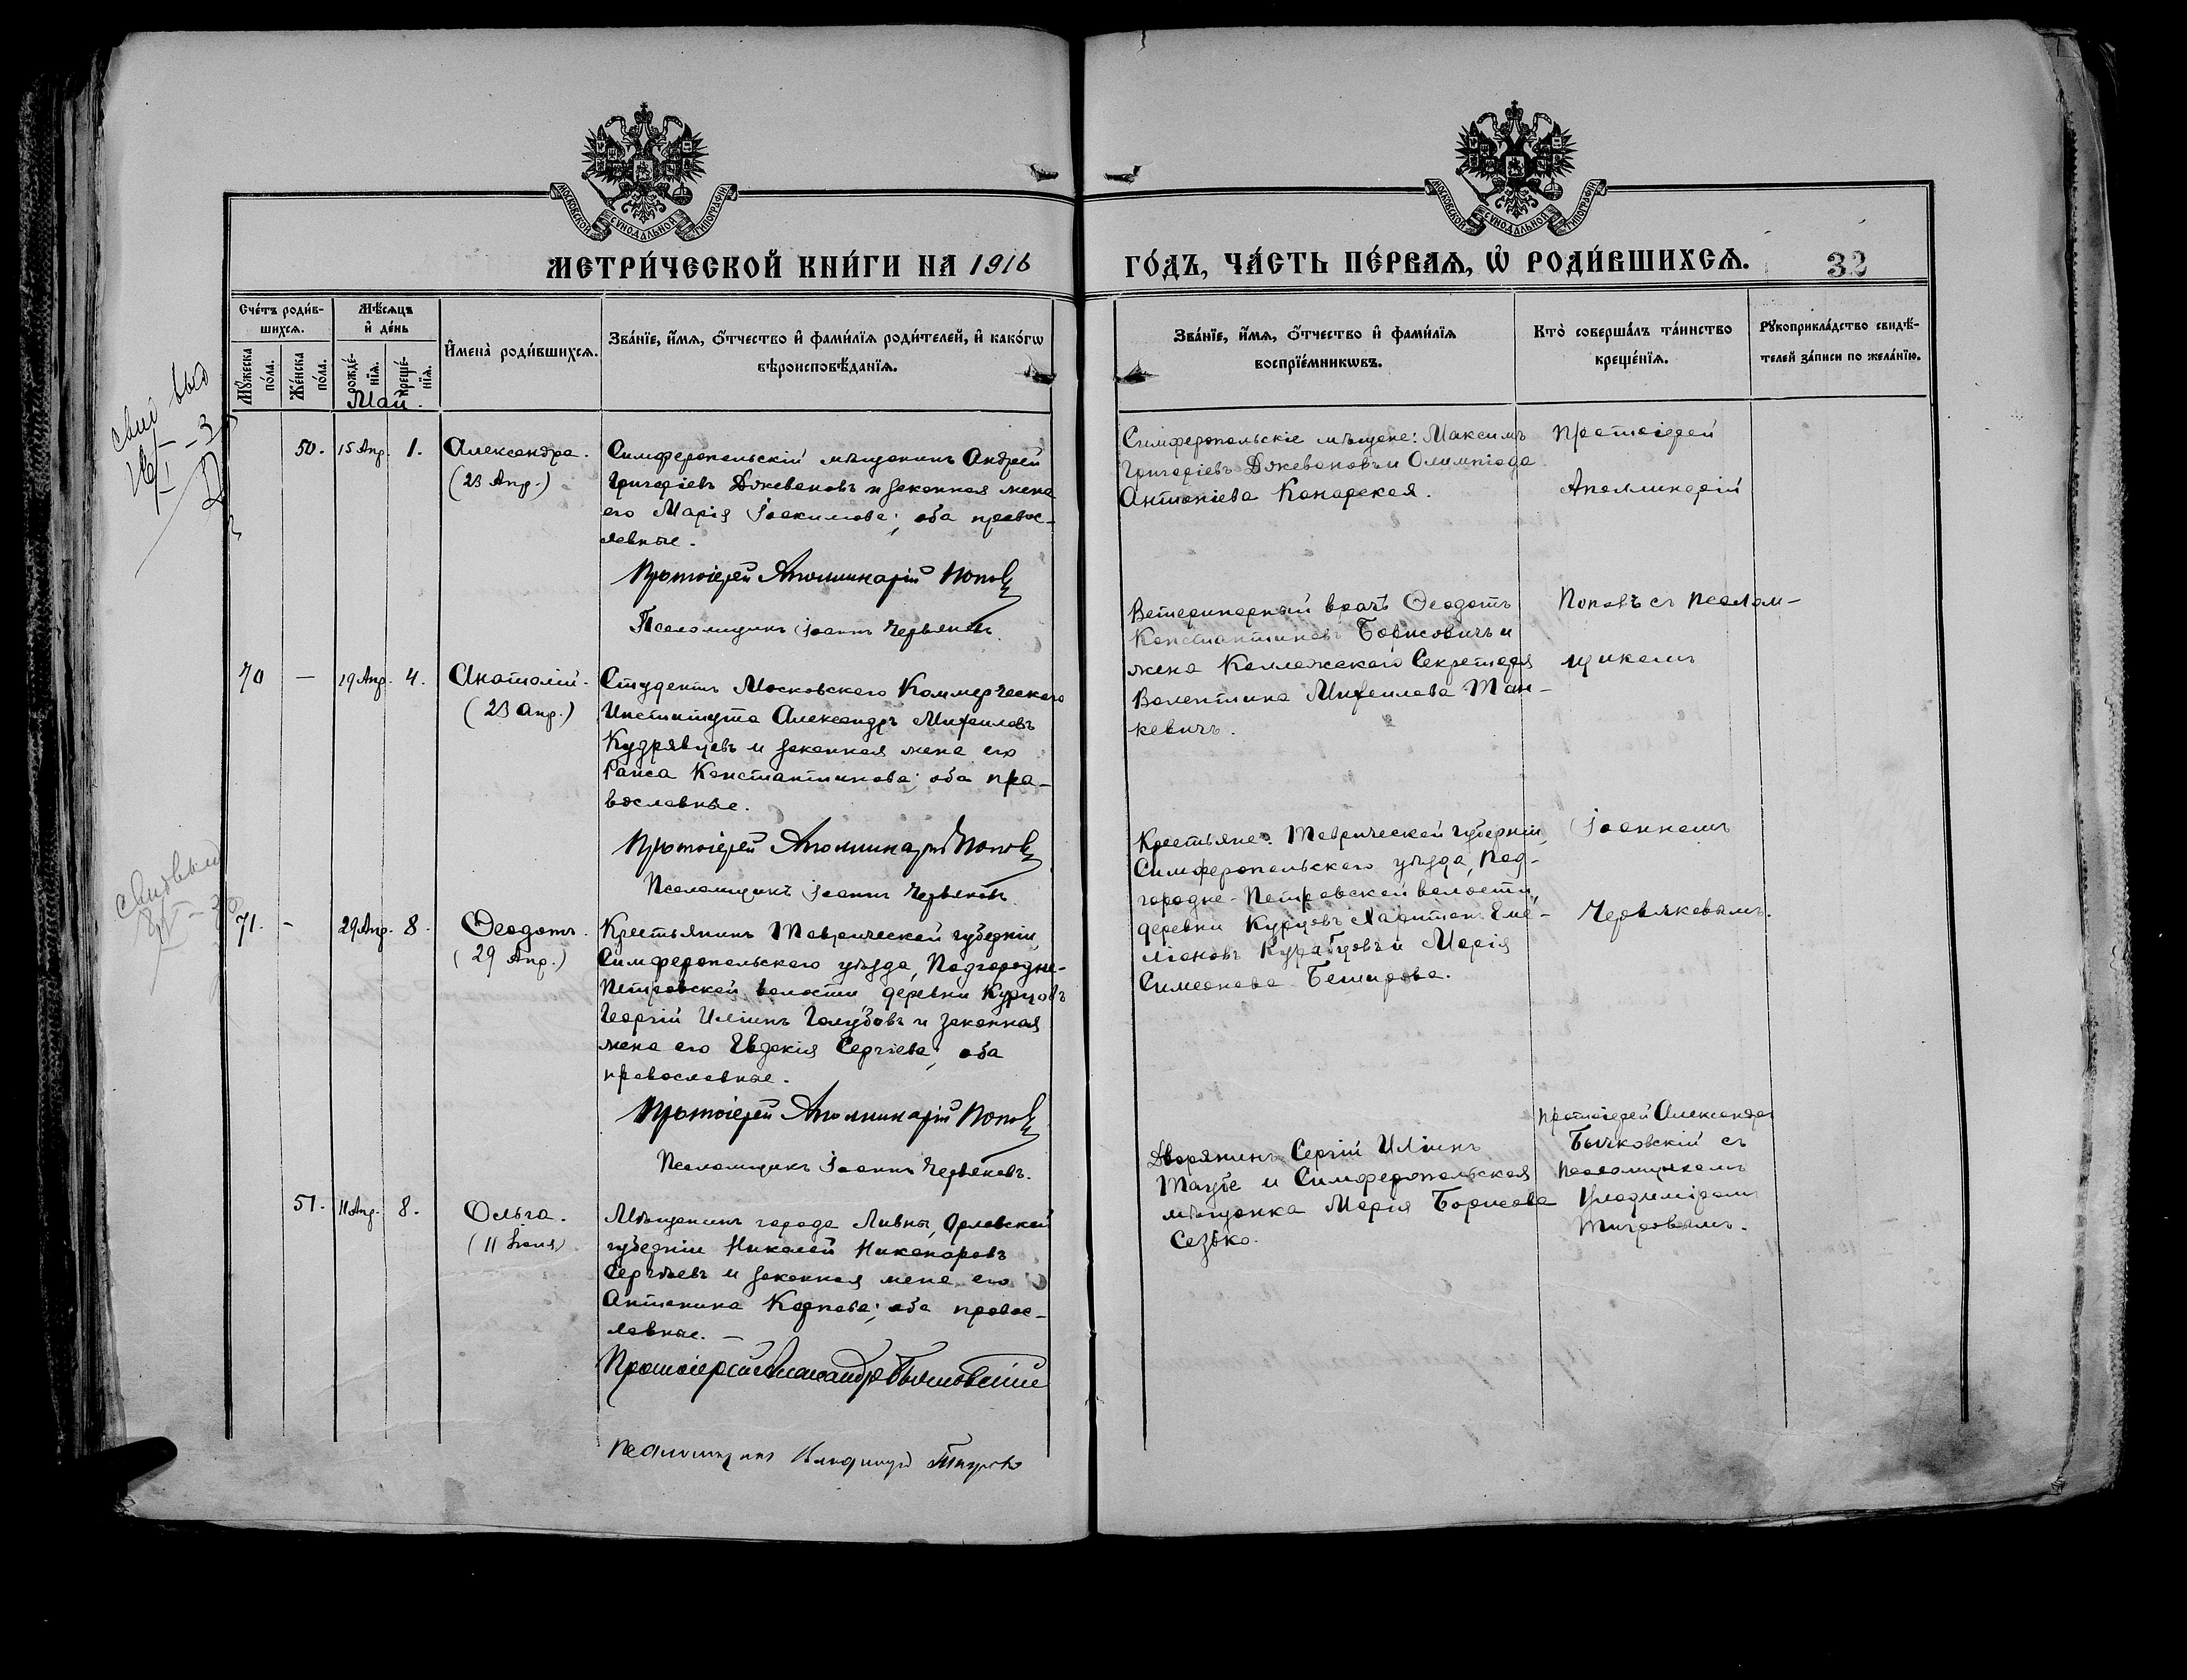 МОСКОВСКОЙ СѴНОДАЛЬНОЙ ТИПОГРАФІИ
МОСКОВСКОЙ СѴНОДАЛЬНОЙ ТИПОГРАФІИ
МЕТРИ́ЧЕСКОЙ КНИ́ГИ НА 1916
ГО́ДЪ, ЧА́СТЬ ПЕ́РВАѦ, Ѡ҆ РОДИ́ВШИХСѦ.
32
Сче́тъ роди́в-
шихсѧ.
Мꙋ́жеска
по́ла.
Же́нска
по́ла.
Мѣ́сѧцъ
и҆ де́нь
рожде́-
нїѧ.
креще́-
нїѧ.
И҆мена̀ роди́вшихсѧ.
Зва́нїе, и҆́мѧ, ѻ҆́тчество и҆ фами́лїѧ роди́телей, и҆ како́гѡ
вѣроисповѣ́данїѧ.
Зва́нїе, и҆́мѧ, ѻ҆́тчество и҆ фами́лїѧ
воспрїе́мникѡвъ.
Кто̀ соверша́лъ та́инство
креще́нїѧ.
Рꙋкоприкла́дство свидѣ́-
телей за́писи по жела́нїю.
Май.
свид выд
50. 15 Апр. 1. Александра.
(23 Апр.)
Симферопольскій мѣщанинъ Андрей
Григоріевъ Дживановъ и законная жена
его Марія Іоакимова; оба правос-
лавные.
Протоіерей Аполлинарій Поповъ
Псаломщикъ Іоаннъ Червяковъ.
Симферопольскіе мѣщане: Максимъ
Григоріевъ Дживановъ и Олимпіада
Антоніева Конарская.
Протоіерей
Аполлинарій
Поповъ съ псалом-
щикомъ
Іоанномъ
Червяковымъ.
70 — 19 Апр. 4. Анатолій.
(23 Апр.)
Студентъ Московскаго Коммерческаго
Института Александръ Михаиловъ
Кудрявцевъ и законная жена его
Раиса Константинова; оба пра-
вославные.
Протоіерей Аполлинарій Поповъ
Псаломщикъ Іоаннъ Червяковъ.
Ветеринарный врачъ Ѳеодотъ
Константиновъ Борисовичъ и
жена Коллежскаго Секретаря
Валентина Михаилова Тан-
кевичъ.
71. - 29 Апр. 8. Ѳеодотъ.
(29 Апр.)
Крестьянинъ Таврической губерніи,
Симферопольскаго уѣзда, Подгородне-
Петровской волости деревни Курцовъ
Георгій Иліинъ Голубовъ и законная
жена его Евдокія Сергіева; оба
православные.
Протоіерей Аполлинарій Поповъ
Псаломщикъ Іоаннъ Червяковъ.
Крестьяне: Таврической губерніи,
Симферопольскаго уѣзда, Под-
городне-Петровской волости,
деревни Курцовъ Харитон Еми-
ліановъ и Марія
Симеонова
51. 11 Апр. 8. Ольга.
(11 Іюля)
Мѣщанинъ города Ливны, Орловской
губерніи Николай Никаноровъ
Сергѣевъ и законная жена его
Антонина Карпова; оба правос-
лавные. —
Протоіерей Александръ Бычковскій
псаломщикъ Владиміръ Тигровъ
Дворянинъ Сергій Иліинъ
Таубе и Симферопольская
мѣщанка Марія Борисова
Сезько.
Протоіерей Александръ
Бычковскій съ
псаломщикомъ
Владиміромъ
Тигровымъ.